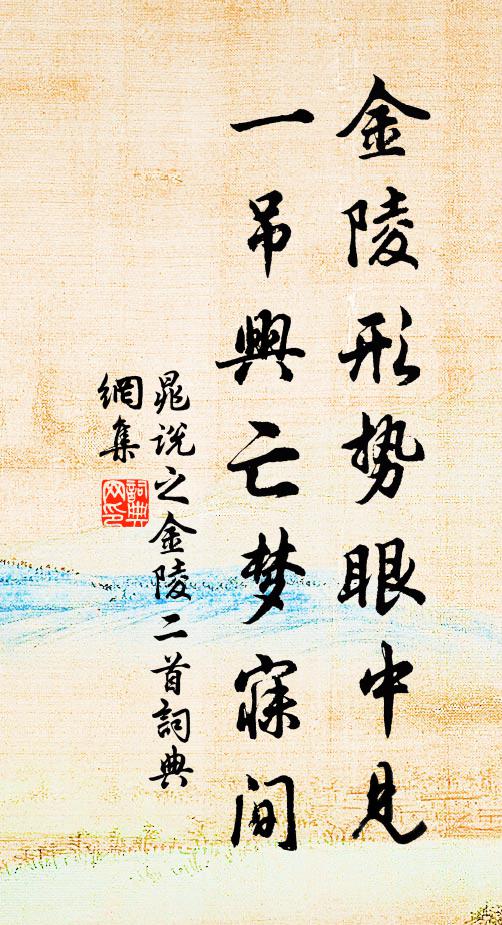 金陵形势眼中見
一吊興亡梦寐间
晁说之金陵二首詞典
網集
詞典
网印